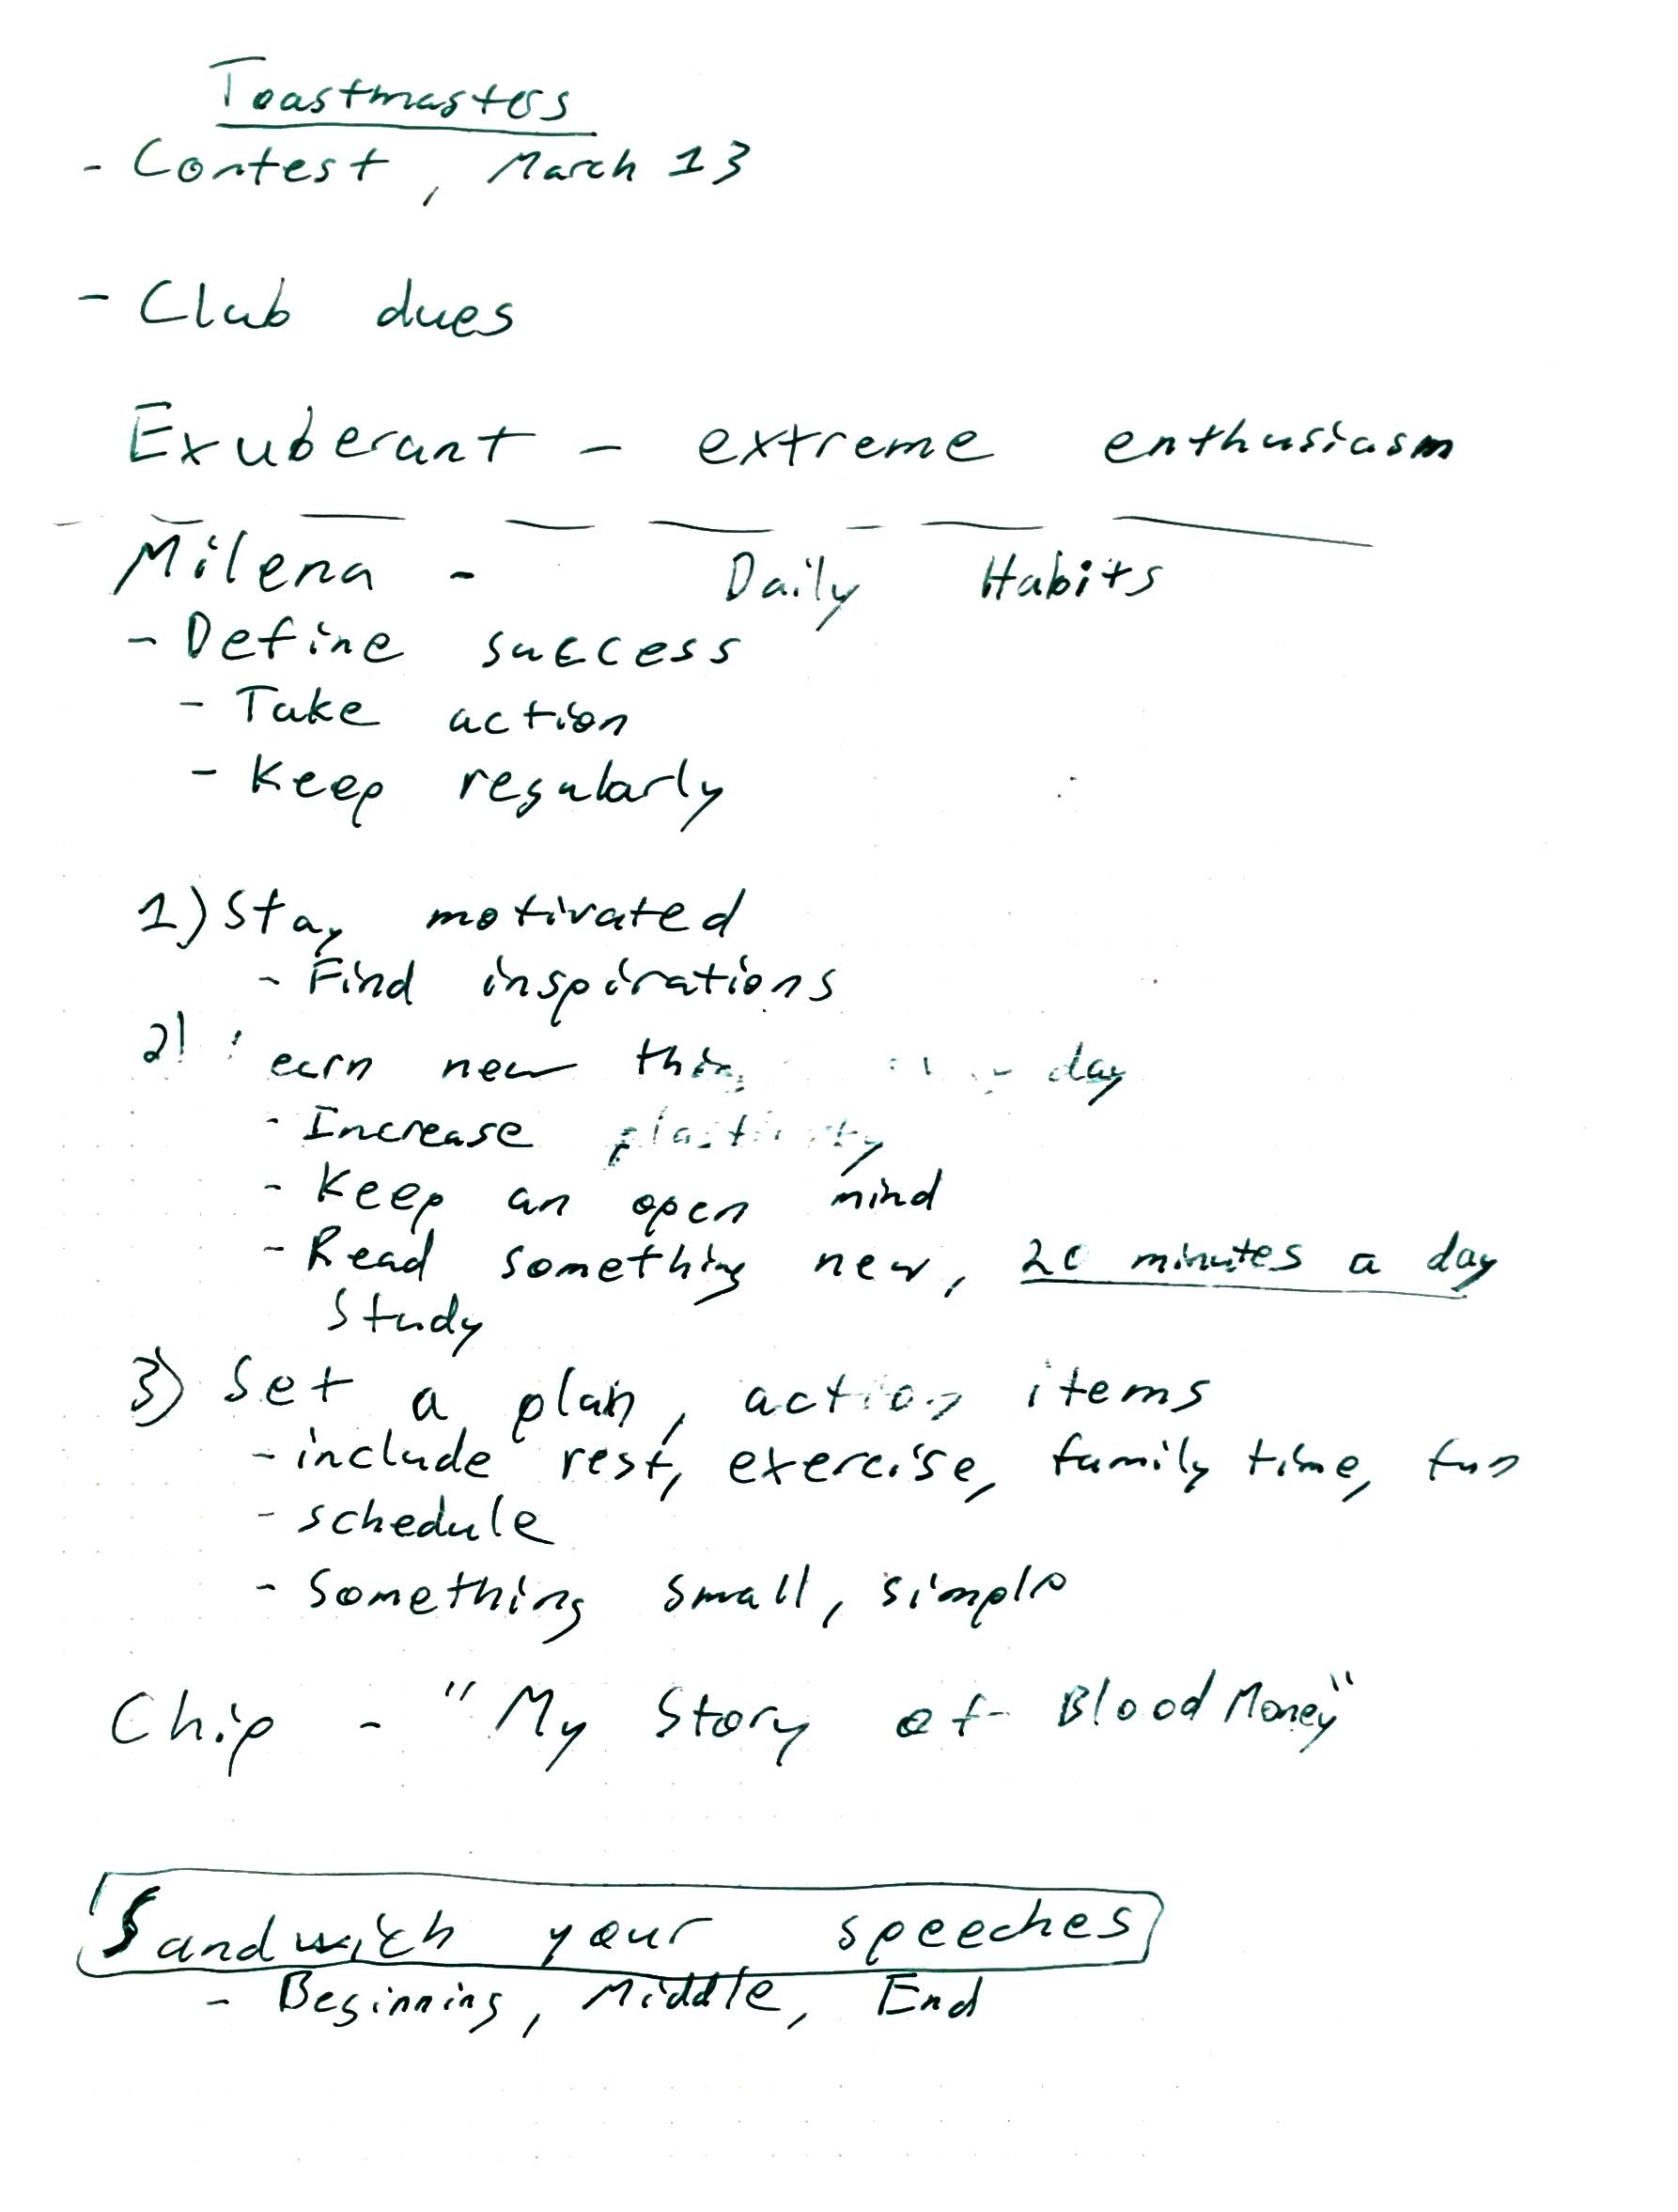 Toastmasters
- Contest, March 13
- Club dues
Exuberant - extreme enthusiasm
Milena - Daily Habits
- Define success
- Take action
- Keep regularly
1) Stay motivated
- Find inspirations
2) Learn new day
- Increase plasticity
- Keep an open mind
- Read something new, 20 minutes a day
Study
3) Set a plan, action items
- include rest, exercise, family time, fun
- schedule
- Something small, simple
Chip - "My Story of Blood Money"
Sandwich your speeches
- Beginning, Middle, End